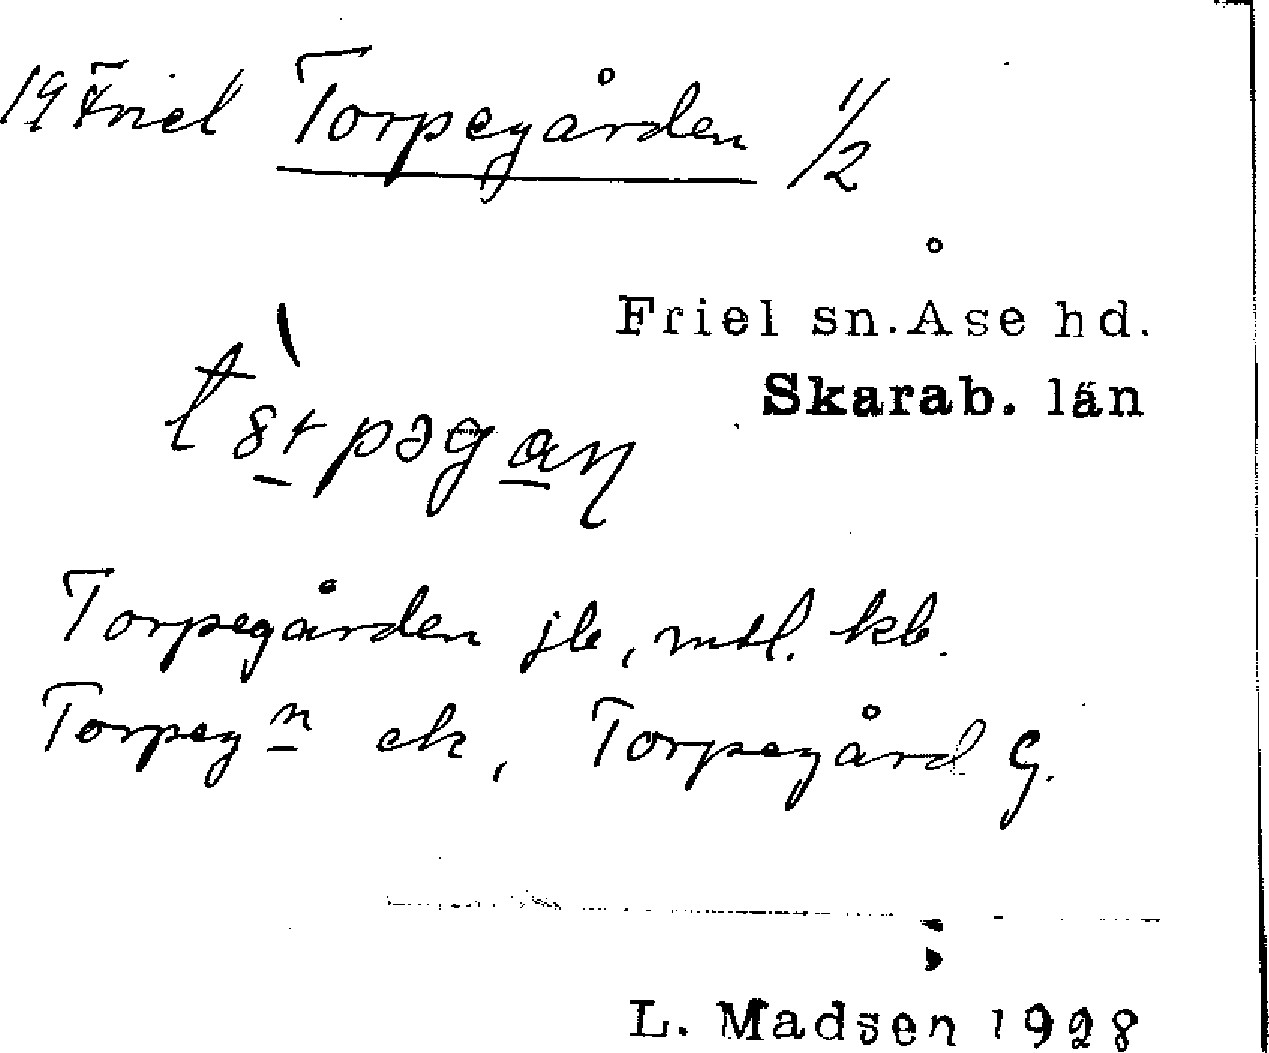 19 Friel Torpegården 1/2
Friel sn. Åse hd.
Skarab. län
Torpegården jb, mtl. kb.
Torpeg<u>n</u> ek, Torpegård G.
L. Madsen 1928